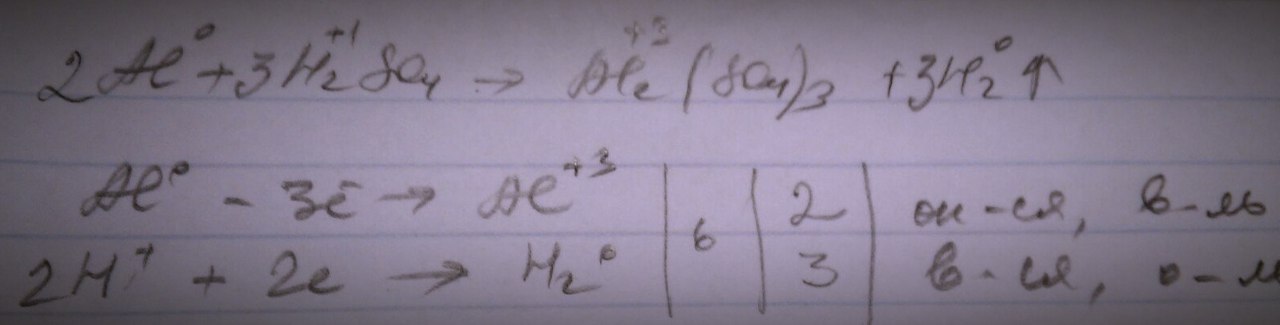 2Al⁰ + 3H₂⁺¹SO₄ → Al₂⁺³(SO₄)₃ + 3H₂⁰↑
Al⁰ - 3ē → Al⁺³ | 6 | 2 | ок-ся, в-ль
2H⁺ + 2e → H₂⁰ | | 3 | в-ся, о-ль